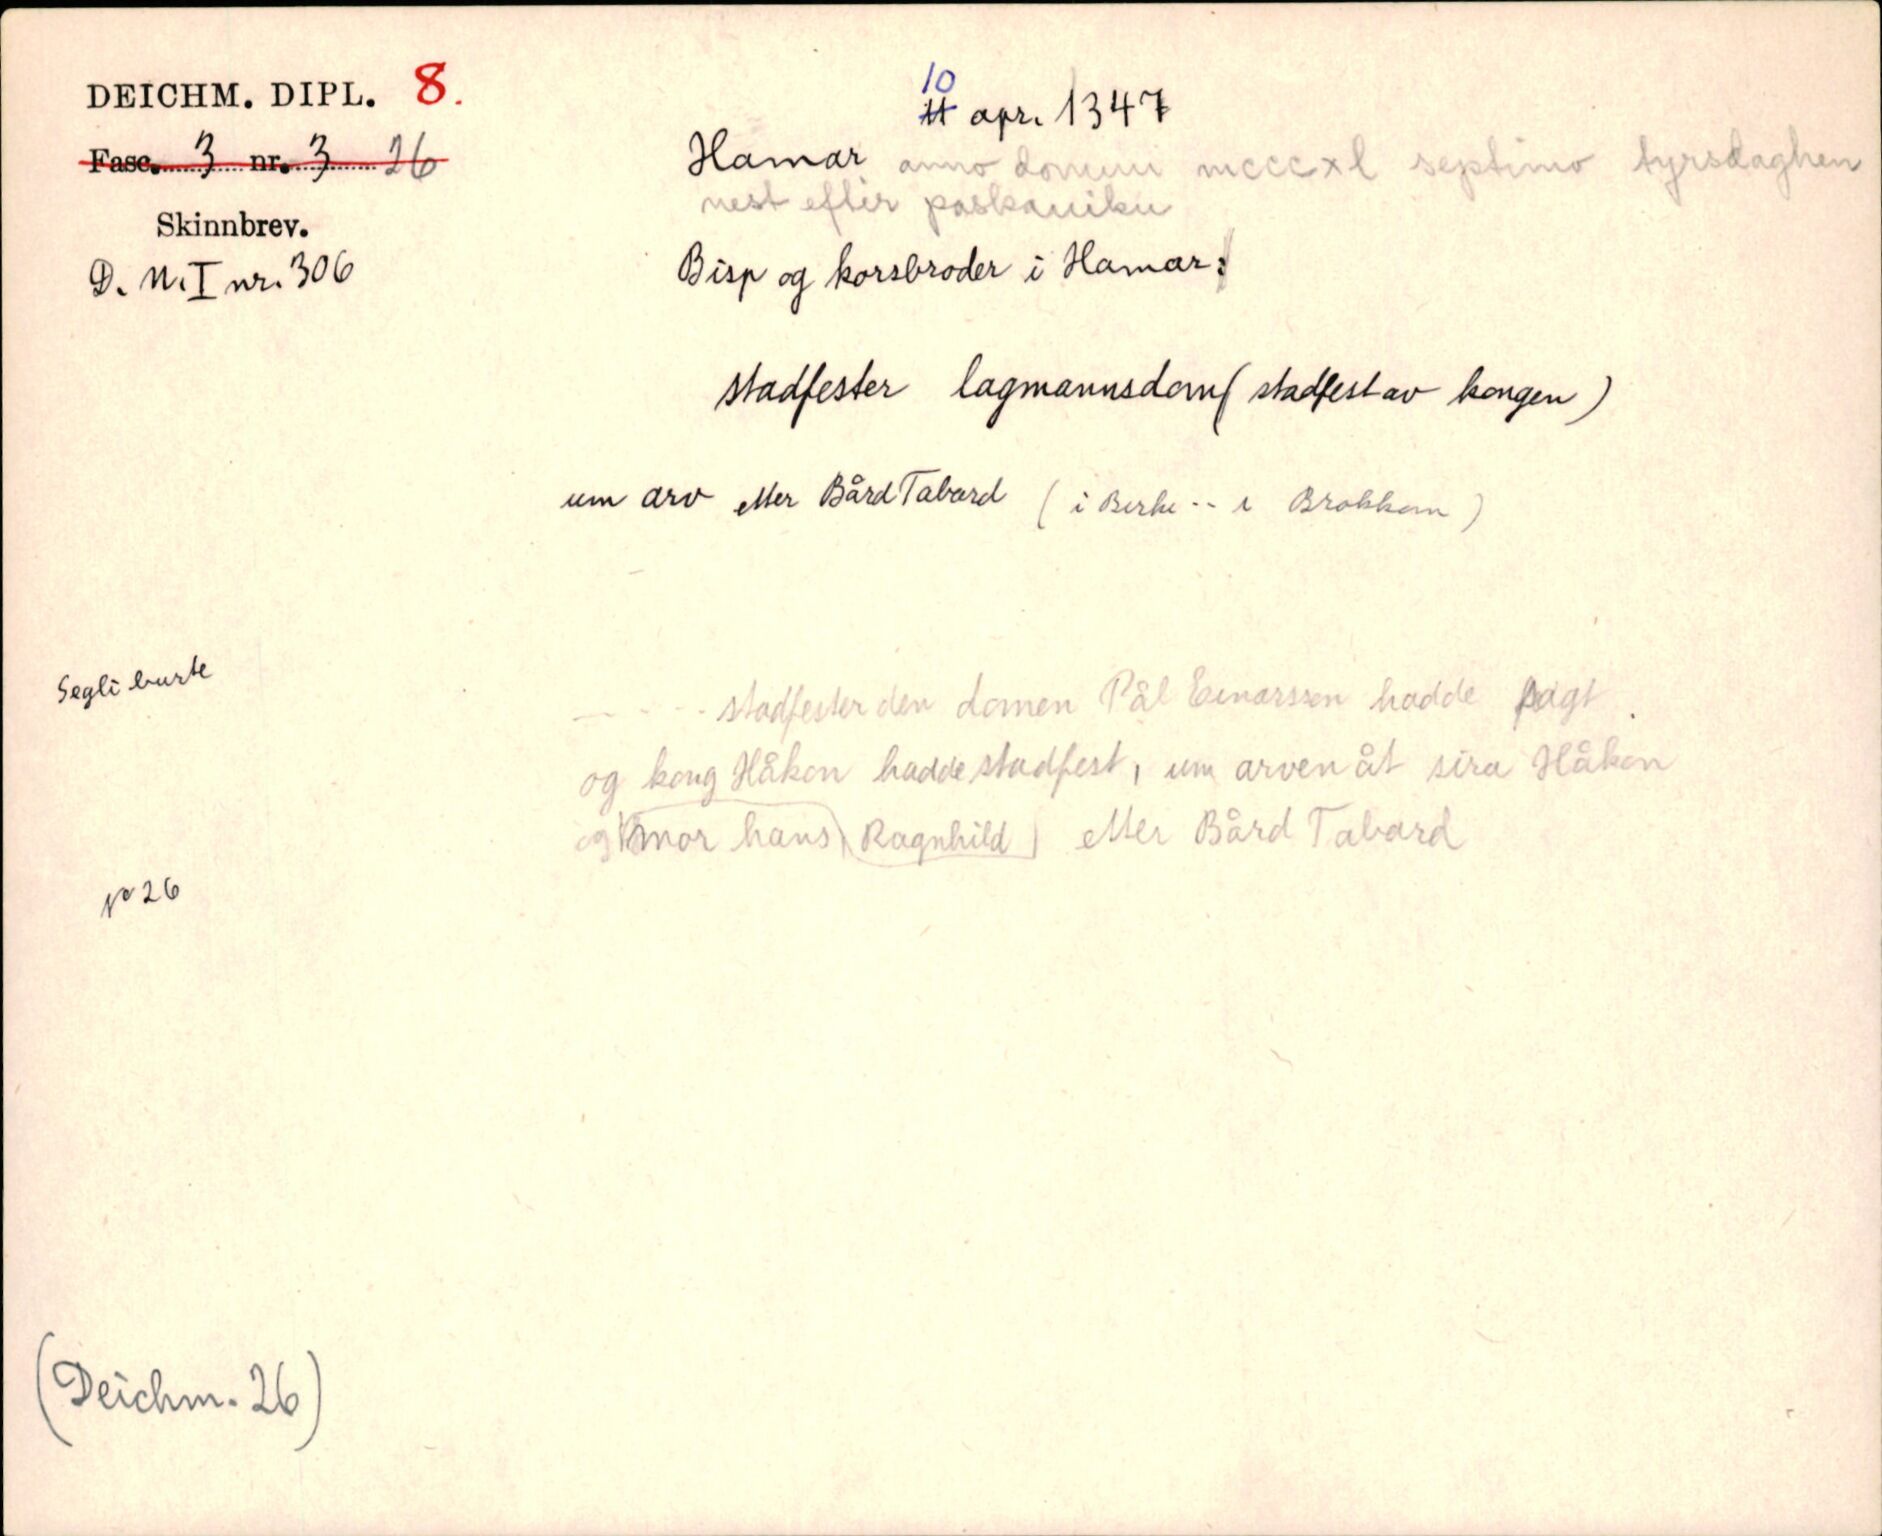 DEICHM. DIPL. 8.
Fasc. 3 nr. 3 26
Skinnbrev.
D. N. I nr. 306
10
11 apr. 1347
Hamar anno domini mcccxl septimo tyrsdaghen
nest eftir paskauiku
Bisp og korsbroder i Hamar:
stadfester lagmannsdom (stadfest av kongen)
um arv etter Bård Tabard (i Berke -- i Brokkom)
Segli burte
- - - - stadfester den domen Pål Einarsson hadde sagt
og kong Håkon hadde stadfest, um arven åt sira Håkon
og mor hans, Ragnhild etter Bård Tabard
No 26
(Deichm. 26)